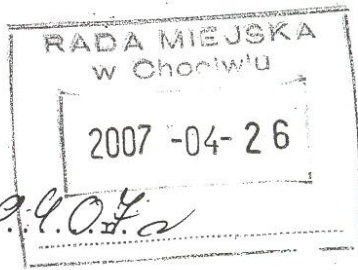 RADA MIEJSKA
w Chociwlu
2007 -04- 26